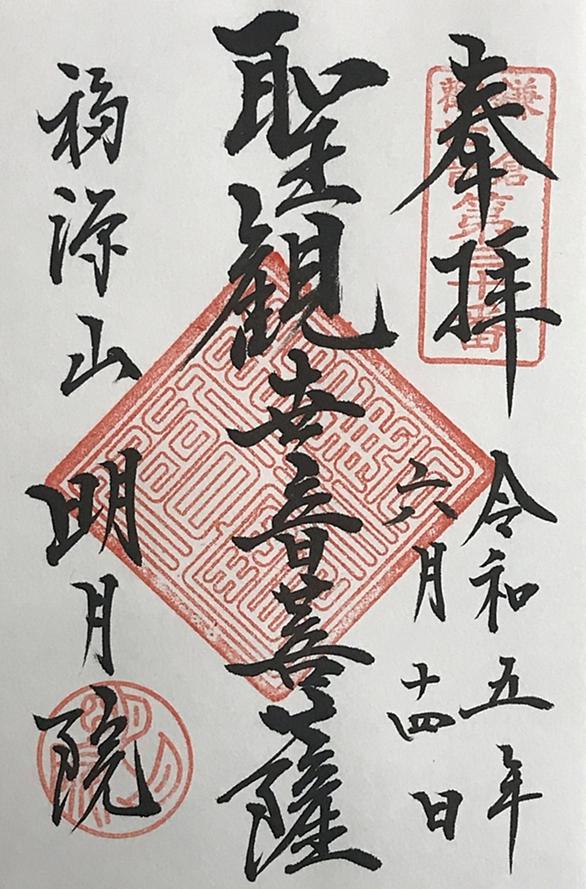 奉拝
鎌倉
観音
第三十番
令和五年
六月十四日
聖観世音菩薩
福源山
明月院